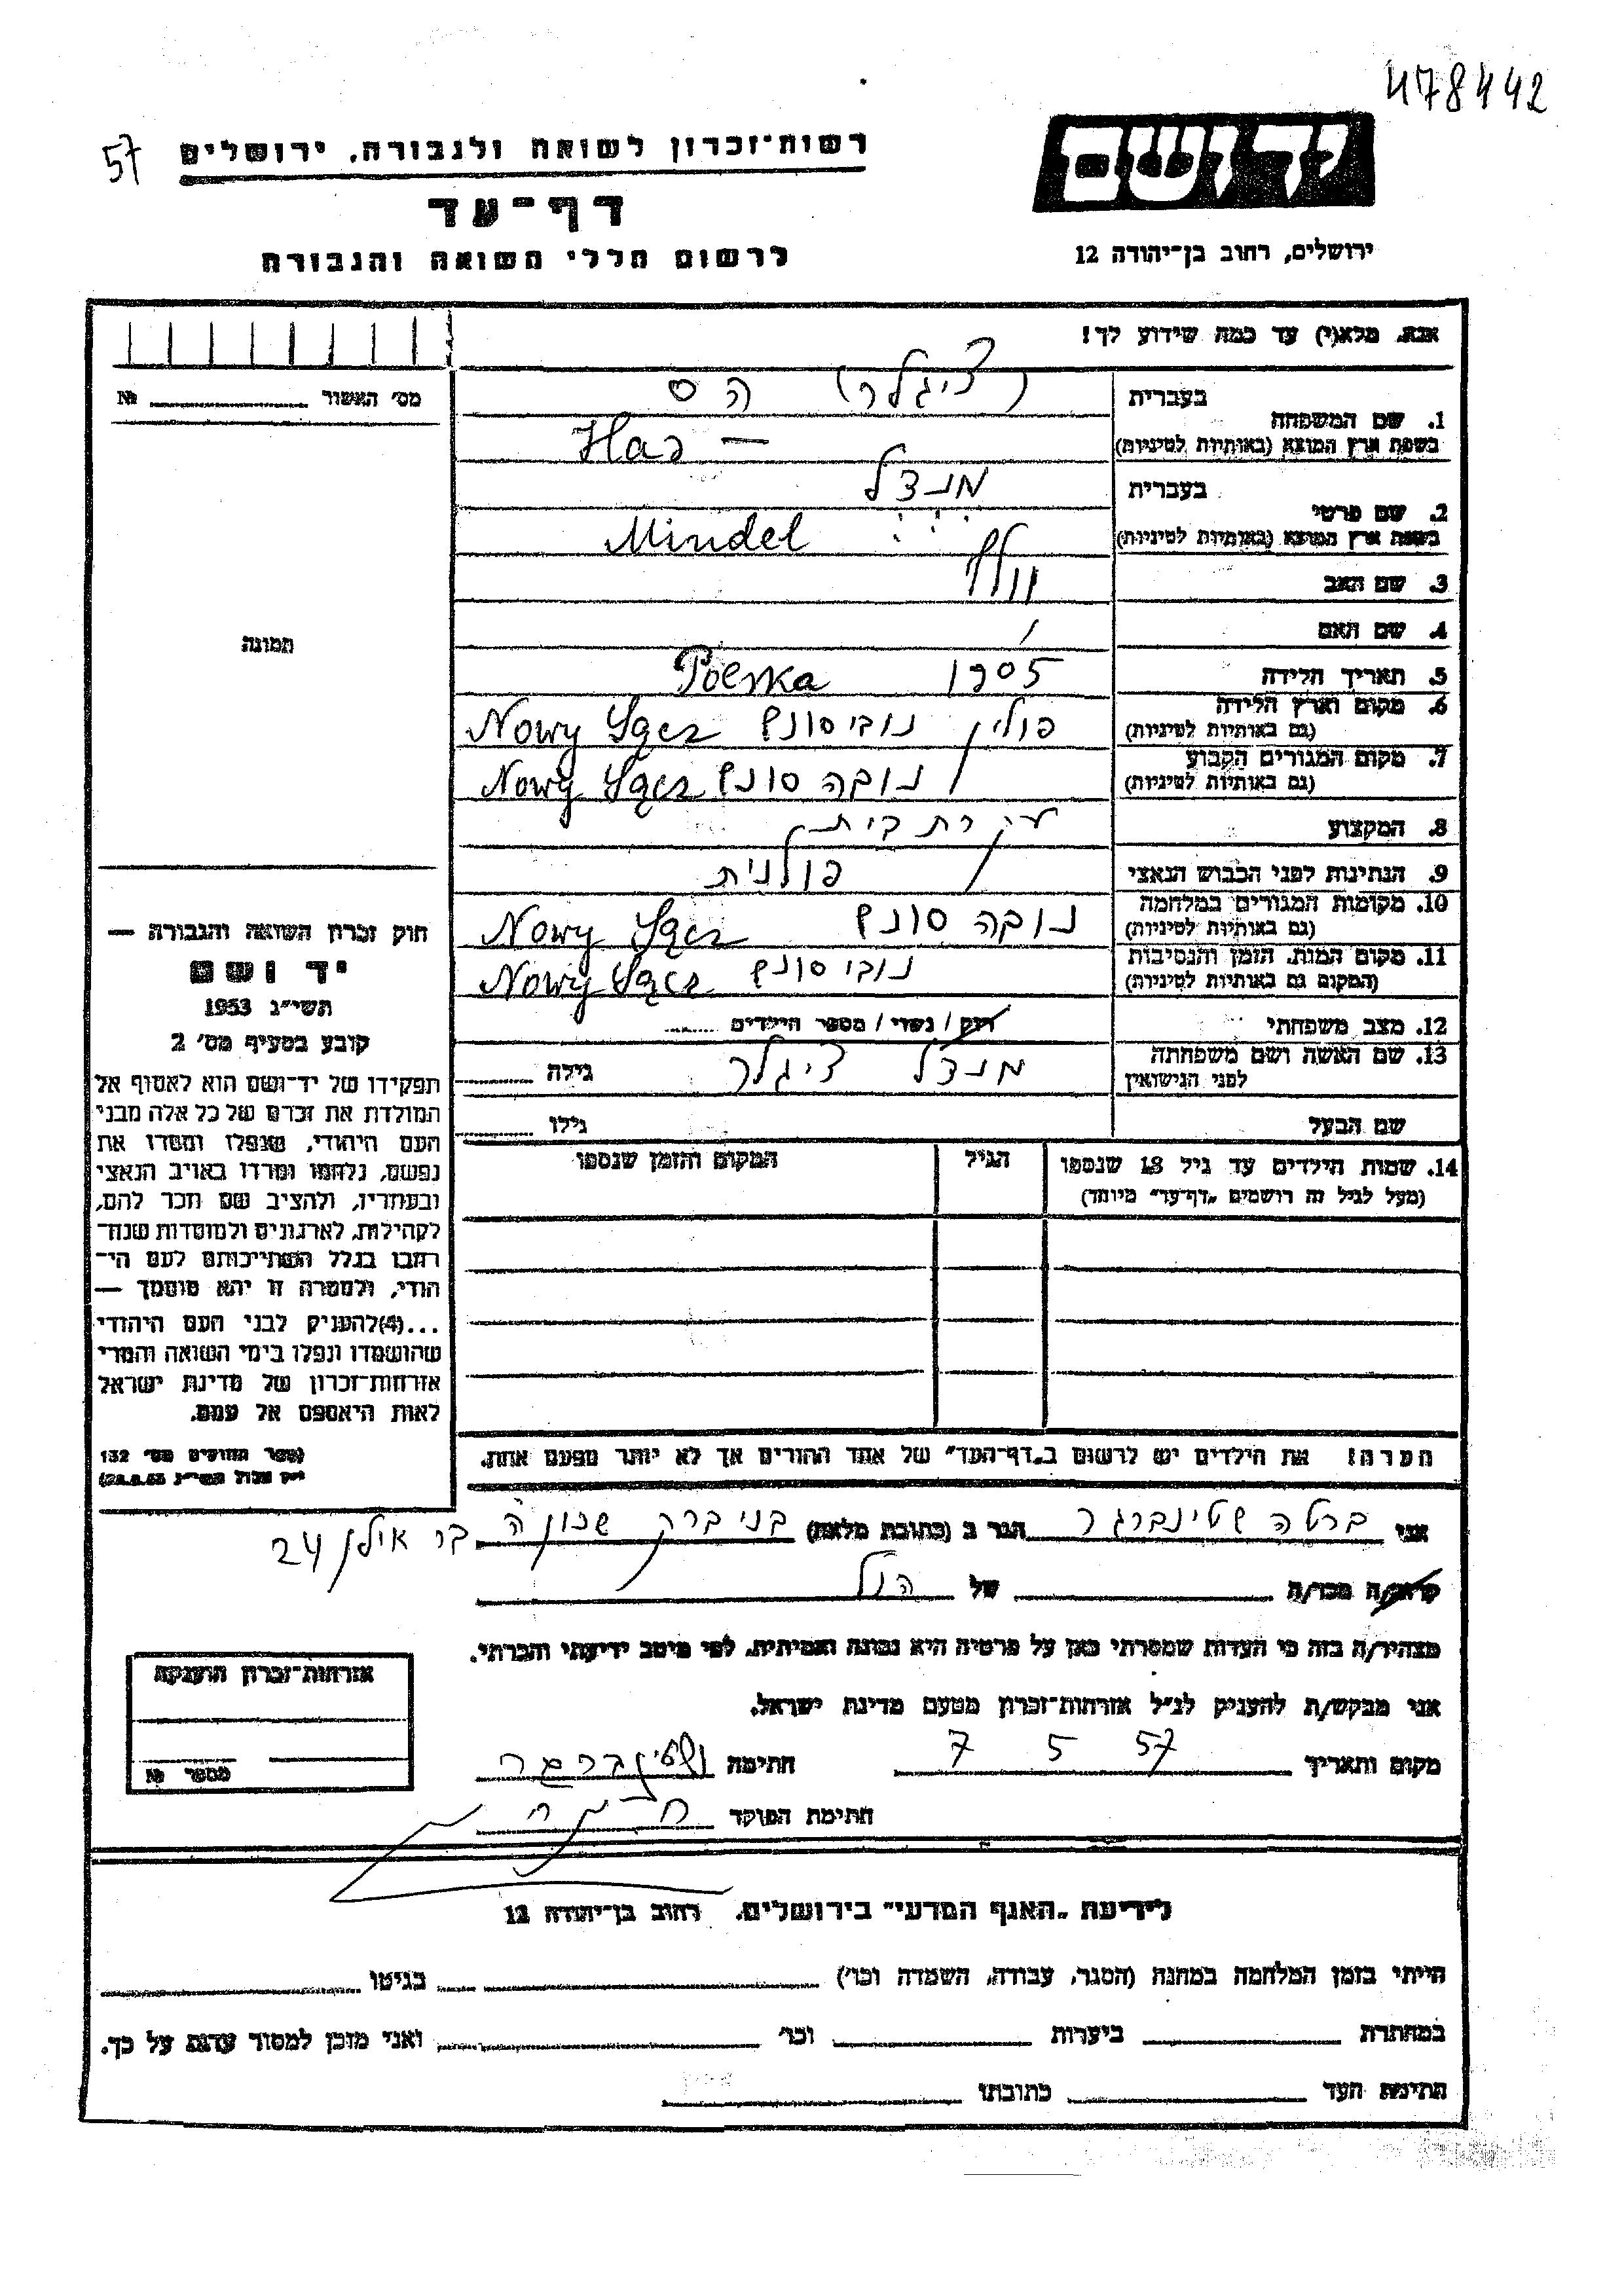 478442
57
רשות־זכרון לשואה ולגבורה, ירושלים
יד ושם
דף־עד
לרשום חללי השואה והגבורה
ירושלים, רחוב בן־יהודה 12
אנא, מלא(י) עד כמה שידוע לך!
מס' האשור № ________
1. שם המשפחה
בעברית
(ציגלר) הס
בשפת ארץ המוצא (באותיות לטיניות)
Has —
2. שם פרטי
בעברית
מנדל
בשפת ארץ המוצא (באותיות לטיניות)
Mindel
3. שם האב
וולף
4. שם האם
/
5. תאריך הלידה
1905 Polska
6. מקום וארץ הלידה
(גם באותיות לטיניות)
פולין נובי סונץ Nowy Sącz
7. מקום המגורים הקבוע
(גם באותיות לטיניות)
נובה סונץ Nowy Sącz
8. המקצוע
עקרת בית
9. הנתינות לפני הכבוש הנאצי
פולנית
10. מקומות המגורים במלחמה
(גם באותיות לטיניות)
נובה סונץ Nowy Sącz
11. מקום המות, הזמן והנסיבות
(המקום גם באותיות לטיניות)
נובי סונץ Nowy Sącz
12. מצב משפחתי
רווק / נשוי / מספר הילדים ........
13. שם האשה ושם משפחתה
לפני הנישואין
מנדל ציגלר גילה ........
שם הבעל גילו ........
14. שמות הילדים עד גיל 18 שנספו
(מעל לגיל זה רושמים "דף־עד" מיוחד)
הגיל
המקום והזמן שנספו
הערה! את הילדים יש לרשום ב"דף־העד" של אחד ההורים אך לא יותר מפעם אחת.
תמונה
חוק זכרון השואה והגבורה —
יד ושם
תשי״ג 1953
קובע בסעיף מס' 2
תפקידו של יד־ושם הוא לאסוף אל
המולדת את זכרם של כל אלה מבני
העם היהודי, שנפלו ומסרו את
נפשם, נלחמו ומרדו באויב הנאצי
ובעוזריו, ולהציב שם וזכר להם,
לקהילות, לארגונים ולמוסדות שנח־
רחבו בגלל השתייכותם לעם הי־
הודי, ולמטרה זו יהא מוסמך —
...(4) להעניק לבני העם היהודי
שהושמדו ונפלו בימי השואה והמרי
אזרחות־זכרון של מדינת ישראל
לאות היאספם אל עמם.
(ספר החוקים מס' 132
אני ברטה שטינברגר הגר ב (כתובת מלאה) בני ברק שכון ה בר אילן 24
קרוב/ה מכר/ה ________ של הנ"ל
מצהיר/ה בזה כי העדות שמסרתי כאן על פרטיה היא נכונה ואמיתית, לפי מיטב ידיעתי והכרתי.
אני מבקש/ת להעניק לנ״ל אזרחות־זכרון מטעם מדינת ישראל.
מקום ותאריך 7 5 57 חתימה שטינברגר
חתימת הפוקד
אזרחות־זכרון הוענקה
מספר №
לידיעת "האגף המדעי" בירושלים, רחוב בן־יהודה 12
הייתי בזמן המלחמה במחנה (הסגר, עבודה, השמדה וכו') ________ בגיטו ________
במחתרת ________ ביערות ________ וכו' ________ ואני מוכן למסור עדות על כך.
חתימת העד ________ כתובתו ________